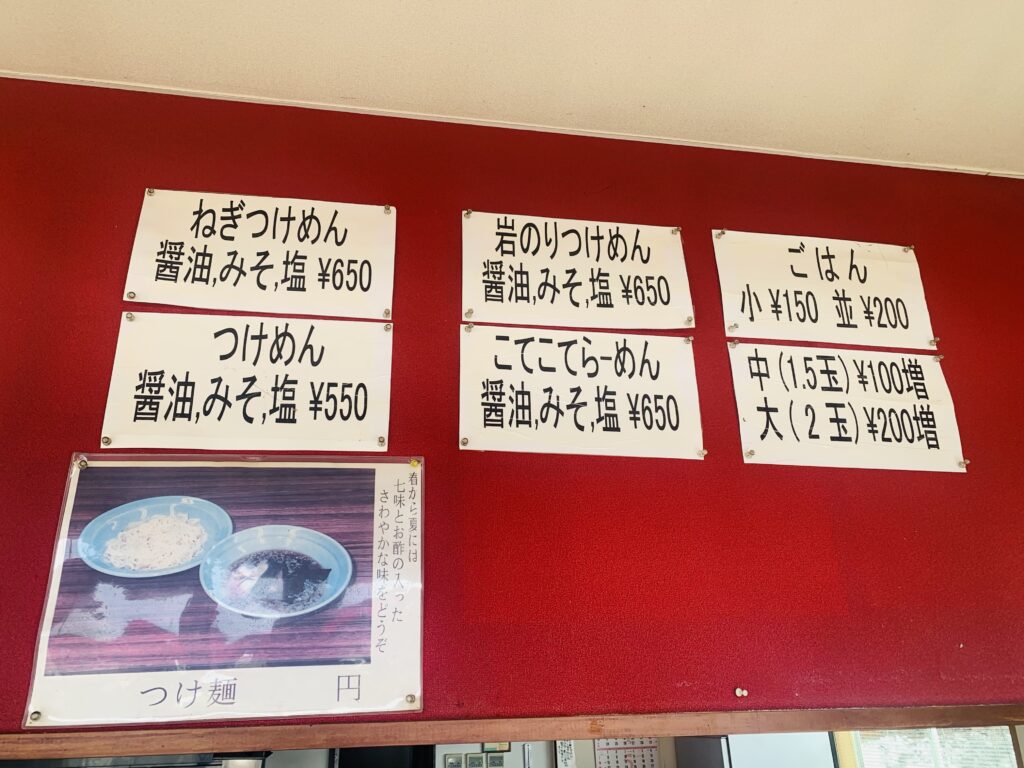 ねぎつけめん
醤油,みそ,塩 ¥650
つけめん
醤油,みそ,塩 ¥550
岩のりつけめん
醤油,みそ,塩 ¥650
こてこてらーめん
醤油,みそ,塩 ¥650
ごはん
小 ¥150 並 ¥200
中(1.5玉)¥100増
大(2玉)¥200増
春から夏には
七味とお酢の入った
さわやかな味をどうぞ
つけ麺 円